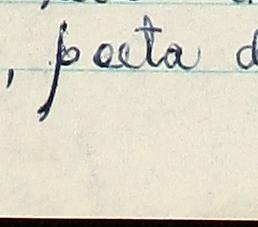 , poeta d